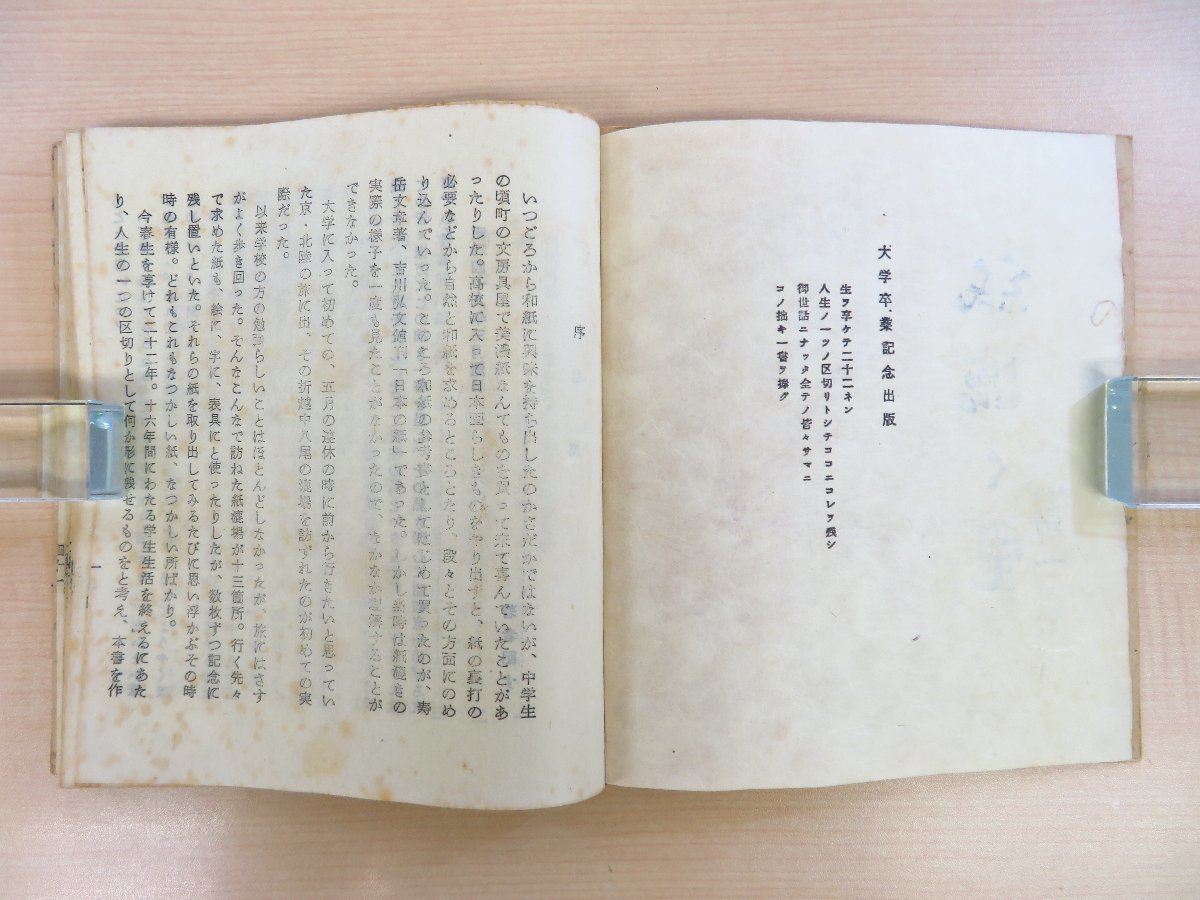 大学卒業記念出版
生ヲ享ケテ二十二ネン
人生ノ一ツノ区切リトシテココニコレヲ残シ
御世話ニナッタ全テノ皆々サマニ
コノ拙キ一書ヲ捧グ
序
いつごろから和紙に興味を持ち出したのかさだかではないが、中学生
の頃町の文房具屋で美濃紙なんてものを買って来て喜んでいたことがあ
ったりした。高校に入って日本画らしきものをやり出すと、紙の裏打の
必要などから自然と和紙を求めるところとたり、段々とその方面にのめ
り込んでいった。このころ和紙の参考書としてはじめて買ったのが、寿
岳文章著、吉川弘文館刊「日本の紙」であった。しかし当時は紙漉きの
実際の様子を一度も見たことがなかったので、なかなか理解することが
できなかった。
大学に入って初めての、五月の連休の時に前から行きたいと思ってい
た京・北陸の旅に出、その折越中八尾の漉場を訪ずれたのが初めての実
際だった。
以来学校の方の勉強らしいことはほとんどしなかったが、旅にはさす
がよく歩き回った。そんなこんなで訪ねた紙漉場が十三箇所。行く先々
で求めた紙も、絵に、字に、表具にと使ったりしたが、数枚ずつ記念に
残し置いといた。それらの紙を取り出してみるたびに思い浮かぶその時
時の有様。どれもこれもなつかしい紙、なつかしい所ばかり。
今春生を享けて二十二年。十六年間にわたる学生生活を終えるにあた
り、人生の一つの区切りとして何か形に残せるものをと考え、本書を作
一